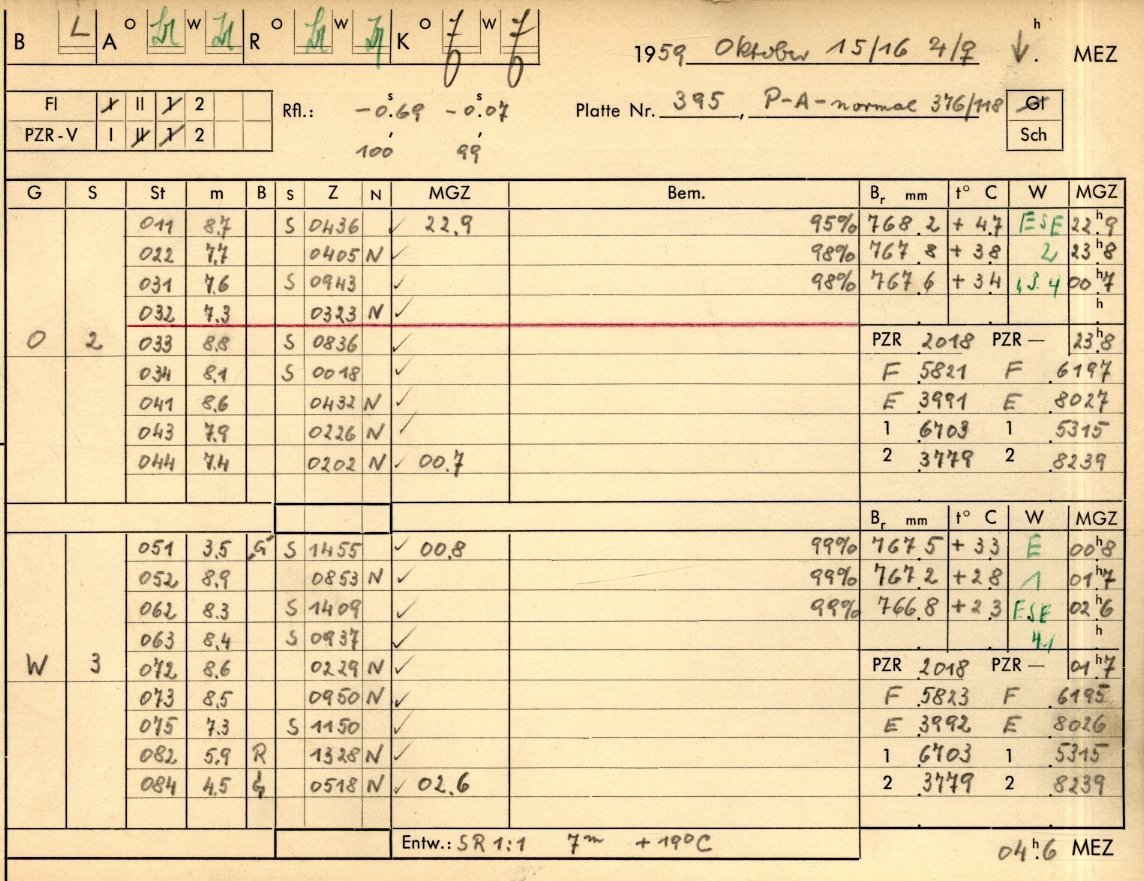 B L A O W R O W K O W 1959 Oktober 15/16 h MEZ
FI I II 1 2 Rfl.: -0.ˢ69 -0.ˢ07 Platte Nr. 395, P-A-normal 376/118 Gl
PZR-V I II 1 2 100 99 Sch
G S St m B S Z N MGZ Bem. Bᵣ mm t° C W MGZ
011 8,7 S 0436 ✓ 22,9 95% 768.2 +4.7 ESE 22ʰ9
022 7,7 0405 N ✓ 98% 767.8 +3.8 2 23ʰ8
031 7,6 S 0943 ✓ 98% 767.6 +3.4 00ʰ7
032 7,3 0323 N ✓ h
O 2 033 8,8 S 0836 ✓ PZR 2018 PZR — 23ʰ8
034 8,1 S 0018 ✓ F .5821 F .6197
041 8,6 0432 N ✓ E .3991 E .8027
043 7,9 0226 N ✓ 1 .6703 1 .5315
044 7,4 0202 N ✓ 00,7 2 .3779 2 .8239
Bᵣ mm t° C W MGZ
051 3,5 S 1455 ✓ 00,8 99% 767.5 +3.3 E 00ʰ8
052 8,9 0853 N ✓ 99% 767.2 +2.8 1 01ʰ7
062 8,3 S 1409 ✓ 99% 766.8 +2.3 ESE 02ʰ6
063 8,4 S 0937 ✓ 4.1 h
W 3 072 8,6 0229 N ✓ PZR 2018 PZR — 01ʰ7
073 8,5 0950 N ✓ F .5823 F .6195
075 7,3 S 1150 ✓ E .3992 E .8026
082 5,9 R 1328 N ✓ 1 .6703 1 .5315
084 4,5 0518 N ✓ 02,6 2 .3779 2 .8239
Entw.: SR 1:1 7ᵐ +19°C 04ʰ.6 MEZ